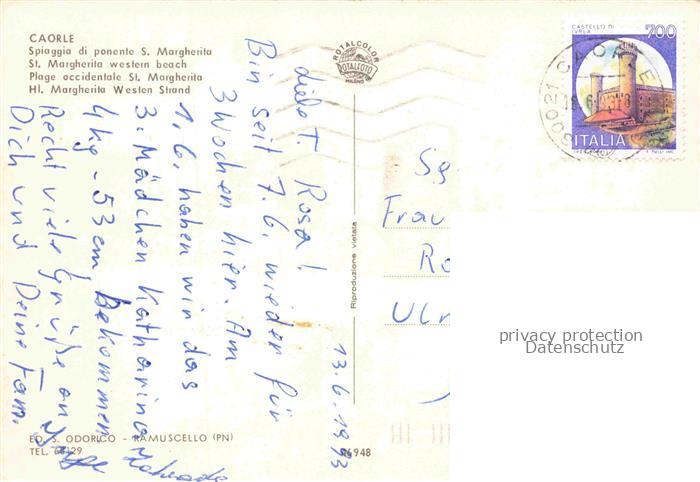 CAORLE
Spiaggia di ponente S. Margherita
St. Margherita western beach
Plage occidentale St. Margherita
Hl. Margherita Westen Strand
ROTALCOLOR
ROTALFOTO
MILANO
CASTELLO DI
IVREA
700
ITALIA
CAORLE
13.6.1993
Liebe T. Rosa!
Bin seit 7.6. wieder für
3 Wochen hier. Am
1.6. haben wir das
3. Mädchen Katharina
4kg - 53 cm Bekommen
Recht viele Grüße an
Dich und Deine Fam.
Riproduzione vietata
Frau
Ro
Ulr
privacy protection
Datenschutz
ED. S. ODORICO - RAMUSCELLO (PN)
TEL. 69129